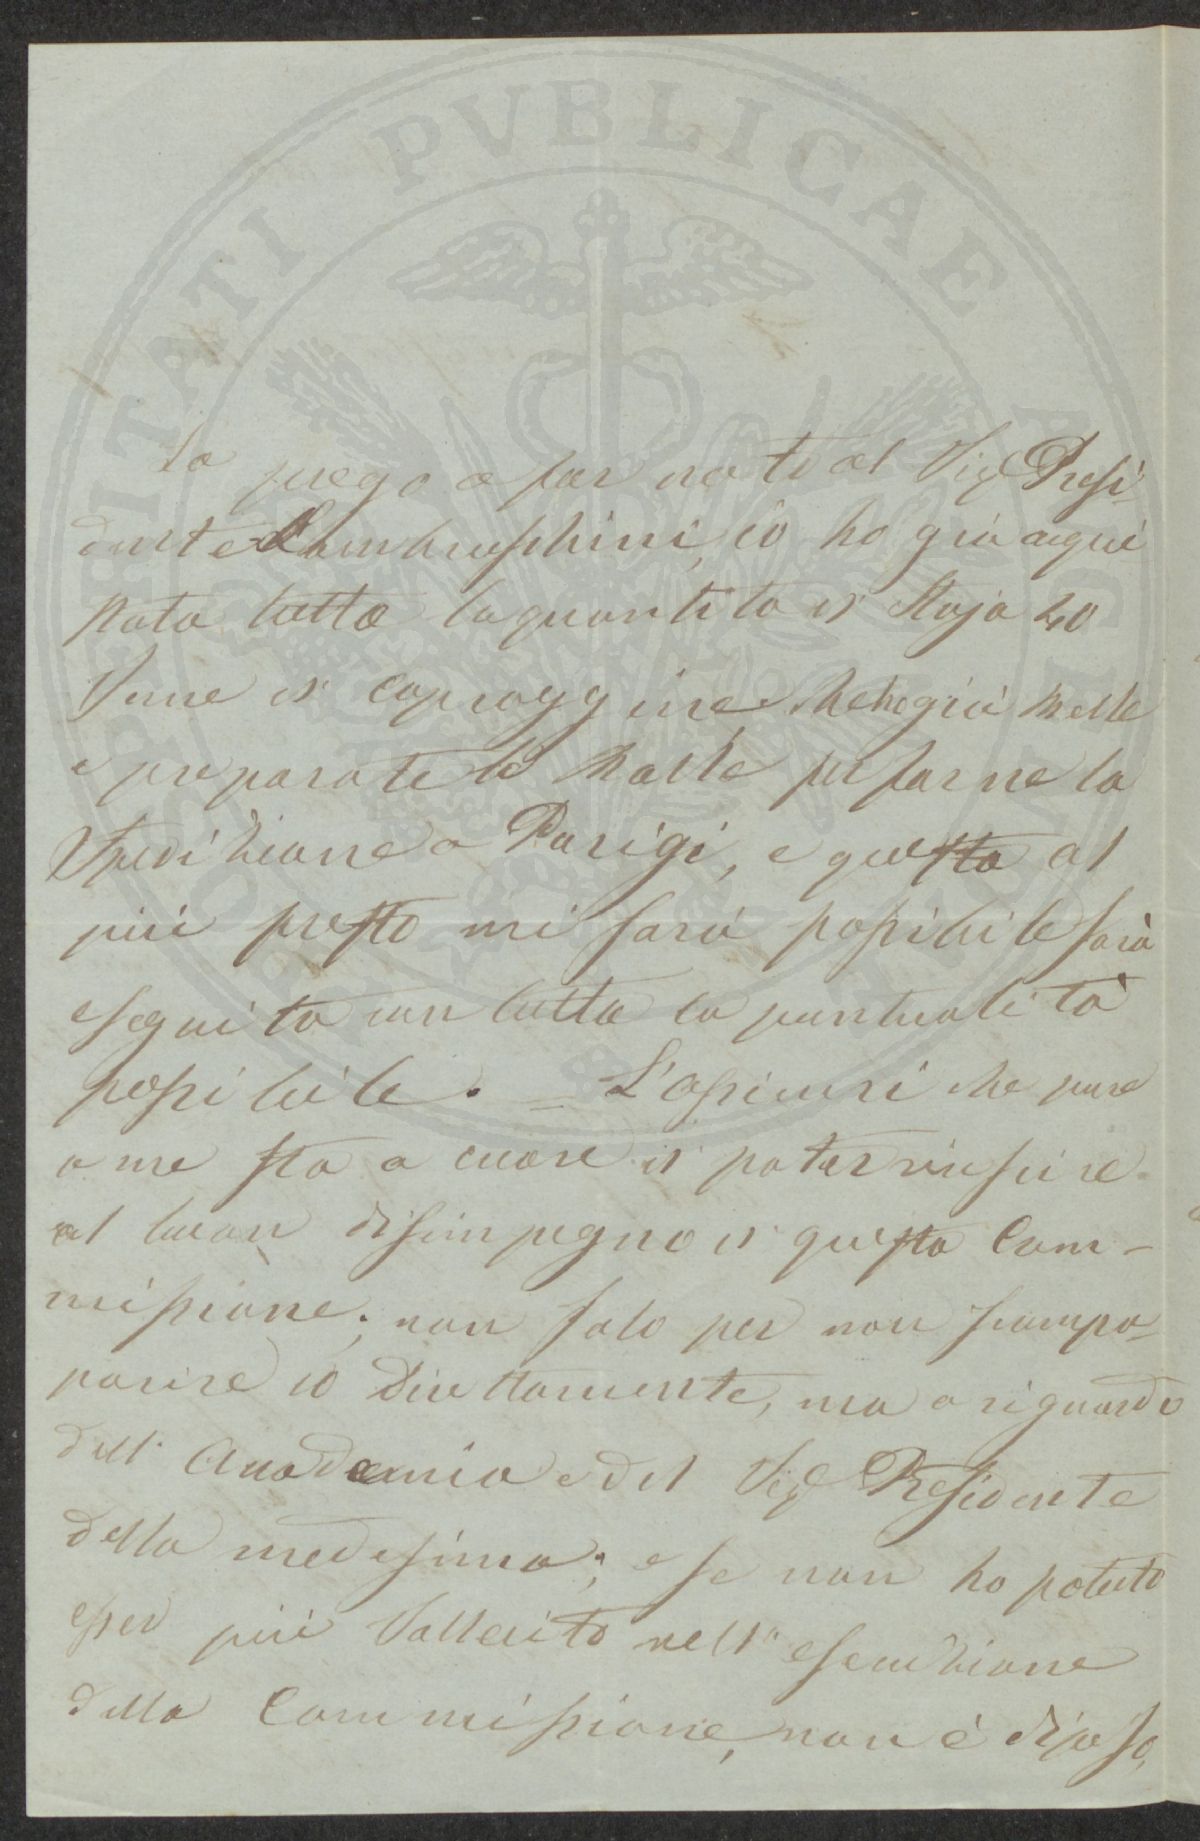 La prego a far noto al Sig.e Presi-
dente Lambruschini, io ho già aqui-
stata tutta la quantità di Staja 40
Seme di Capraggine e che ho già Messe
e preparate le Balle per farne la
Spedizione a Parigi, e questa al
più presto mi sarà possibile sarà
eseguita con tutta la puntualità
possibile. = L'assicuri che pure
a me sta a cuore di poter riuscire
al buon disimpegno di questa Com-
missione; non solo per non
io Direttamente, ma a riguardo
dell' Accademia e del Sig.e Presidente
della medesima; e se non ho potuto
esser più Sollecito nell' esecuzione
della Commissione, non è dipeso,